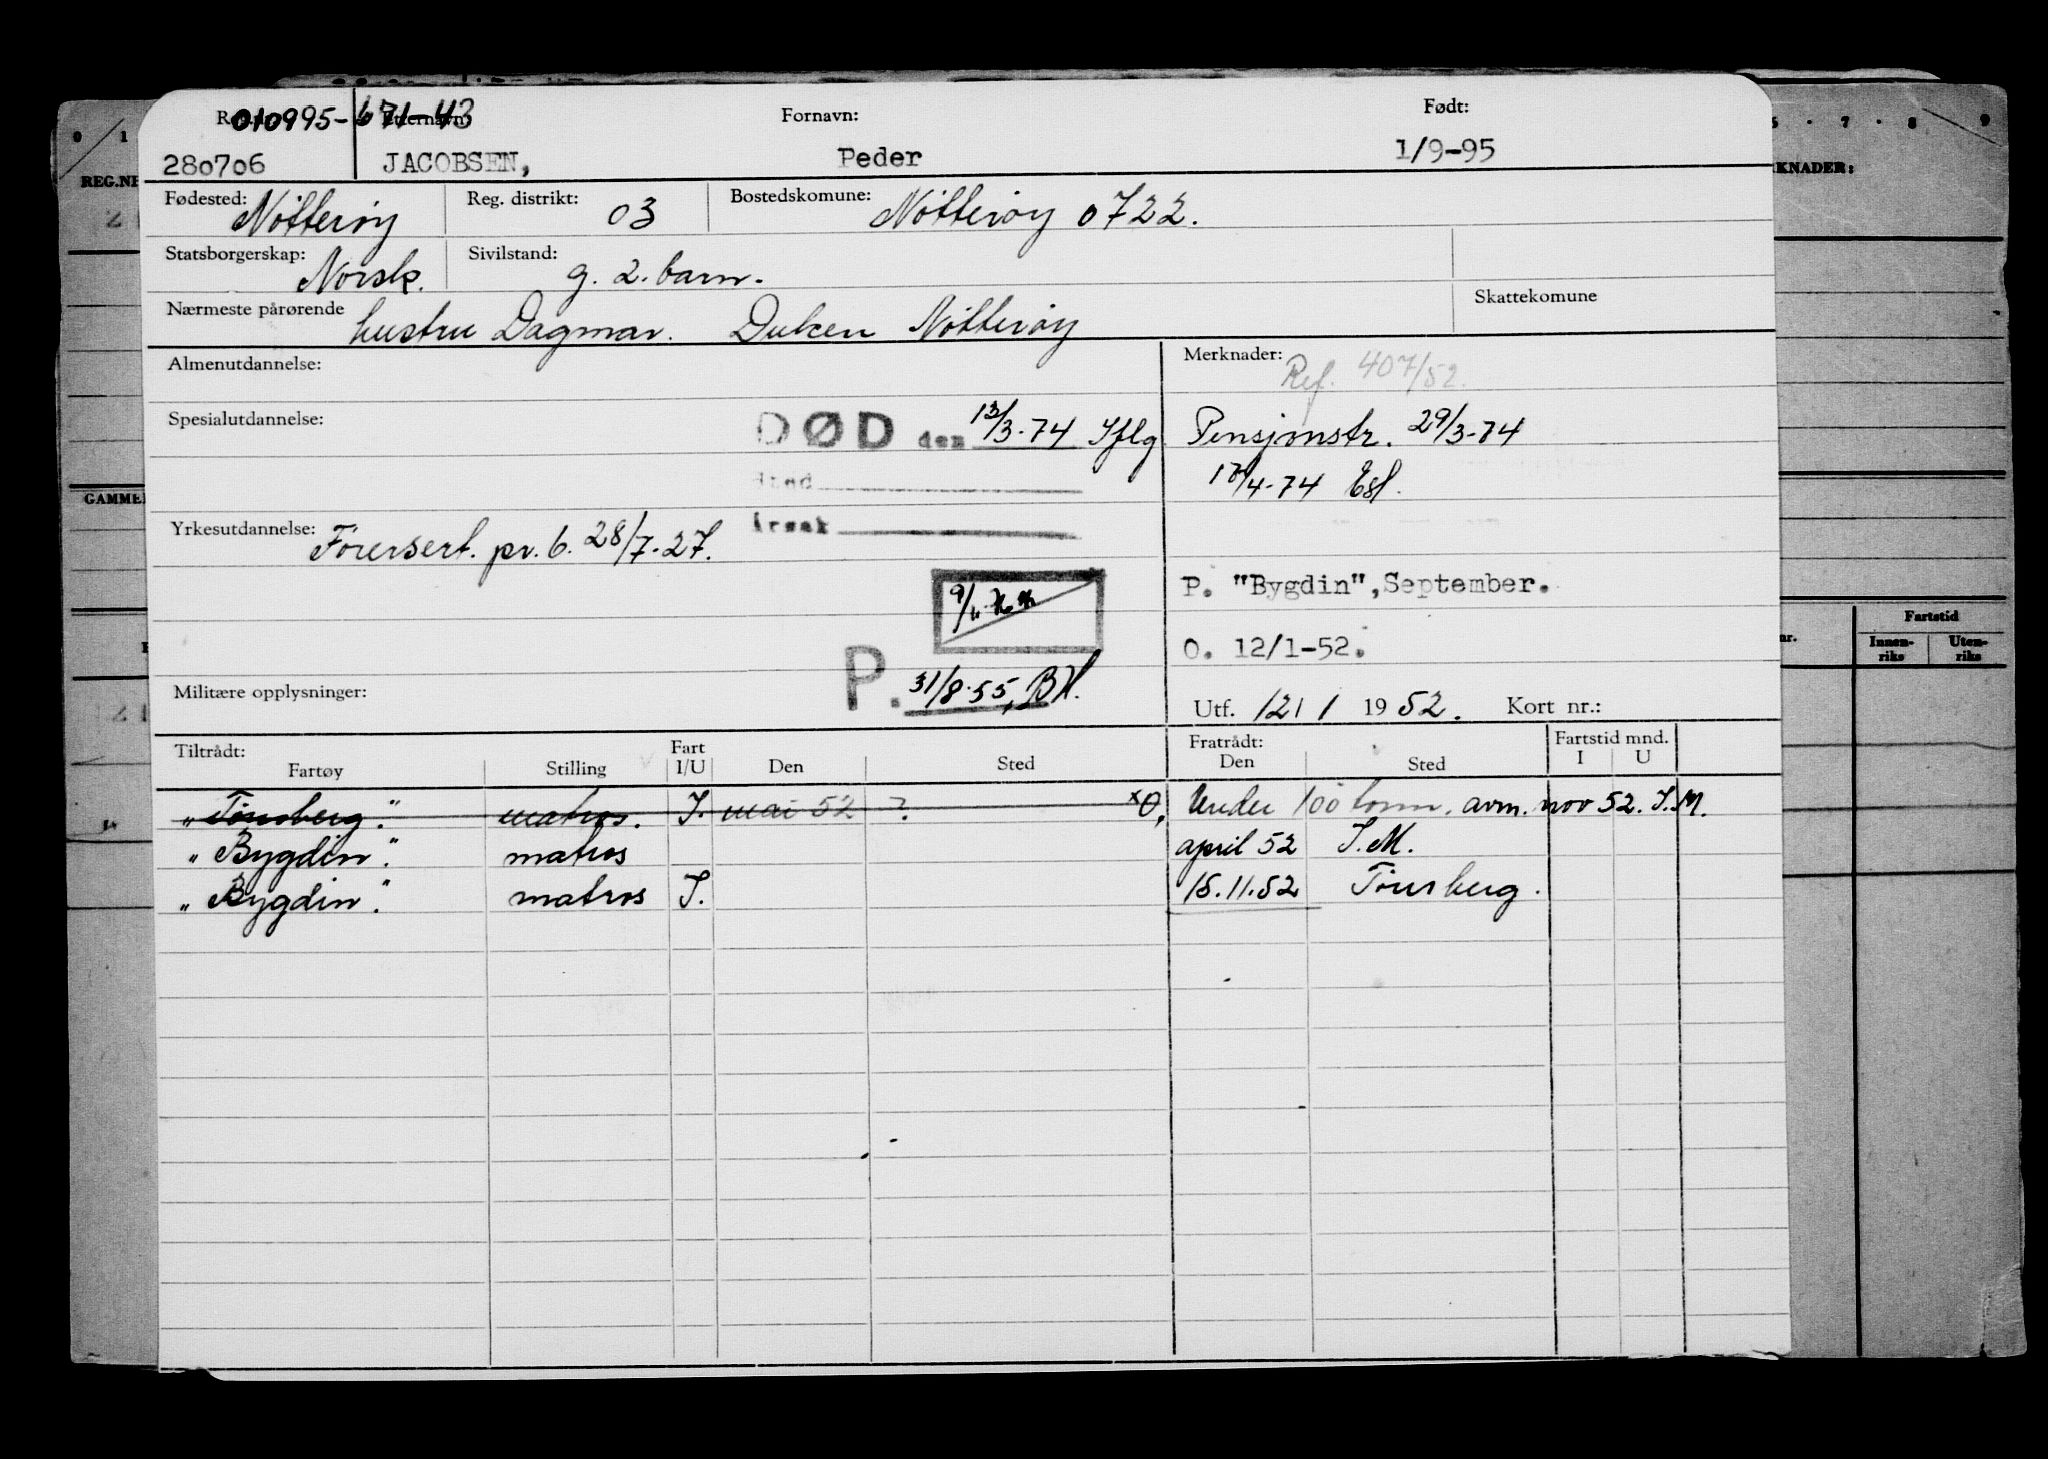 010995-671-43
Reg.nr. Etternavn: Fornavn: Født:
280706 JACOBSEN, Peder 1/9-95
Fødested: Nötteröy Reg. distrikt: 03 Bostedskomune: Nötteröy 0722.
Statsborgerskap: Norsk. Sivilstand: g. 2. barn.
Nærmeste pårørende hustru Dagmar. Duken Nötteröy Skattekomune
Almenutdannelse: Merknader: Ref. 407/52.
Spesialutdannelse: DØD den 13/3-74 Iflg Pensjonstr. 29/3-74
Sted 18/4-74 Esl.
Yrkesutdannelse: Førersert. pr. 6. 28/7-27. Årsak
P. "Bygdin", September.
O. 12/1-52.
Militære opplysninger: P. 31/8-55, BH. Utf. 12/1 1952. Kort nr.:
Tiltrådt: Fart Fratrådt: Fartstid mnd.
Fartøy Stilling I/U Den Sted Den Sted I U
"Tönsberg." matros. I. mai 52 ?. xO, Under 100 tonn. avm. nov 52. I.M.
"Bygdin." matros april 52 I.M.
"Bygdin." matros I. 15.11.52 Tönsberg.
0 1 7 8 9
REG.NR
KNADER:
GAMMEL
Fartstid
nr. Innen-riks Uten-riks